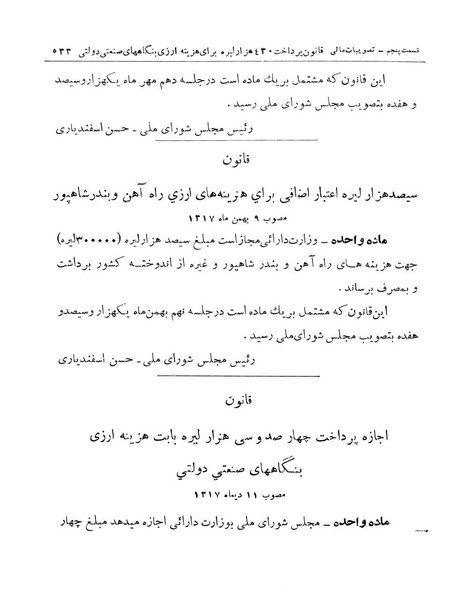 قسمت پنجم - تصویبات مالی قانون پرداخت ٤٣٠ هزار لیره برای هزینه ارزی بنگاههای صنعتی دولتی ٥٣٣
این قانون که مشتمل بر یك ماده است در جلسه دهم مهر ماه یکهزار و سیصد
و هفده بتصویب مجلس شورای ملی رسید .
رئیس مجلس شورای ملی - حسن اسفندیاری
قانون
سیصد هزار لیره اعتبار اضافی برای هزینه‌های ارزی راه آهن و بندر شاهپور
مصوب ۹ بهمن ماه ۱۳۱۷
ماده واحده - وزارت دارائی مجاز است مبلغ سیصد هزار لیره (۳۰۰۰۰۰ لیره)
جهت هزینه های راه آهن و بندر شاهپور و غیره از اندوخته کشور برداشت
و بمصرف برساند .
این قانون که مشتمل بر یك ماده است در جلسه نهم بهمن ماه یکهزار و سیصد و
هفده بتصویب مجلس شورای ملی رسید .
رئیس مجلس شورای ملی - حسن اسفندیاری
قانون
اجازه پرداخت چهار صد و سی هزار لیره بابت هزینه ارزی
بنگاههای صنعتی دولتی
مصوب ۱۱ دیماه ۱۳۱۷
ماده واحده - مجلس شورای ملی بوزارت دارائی اجازه میدهد مبلغ چهار